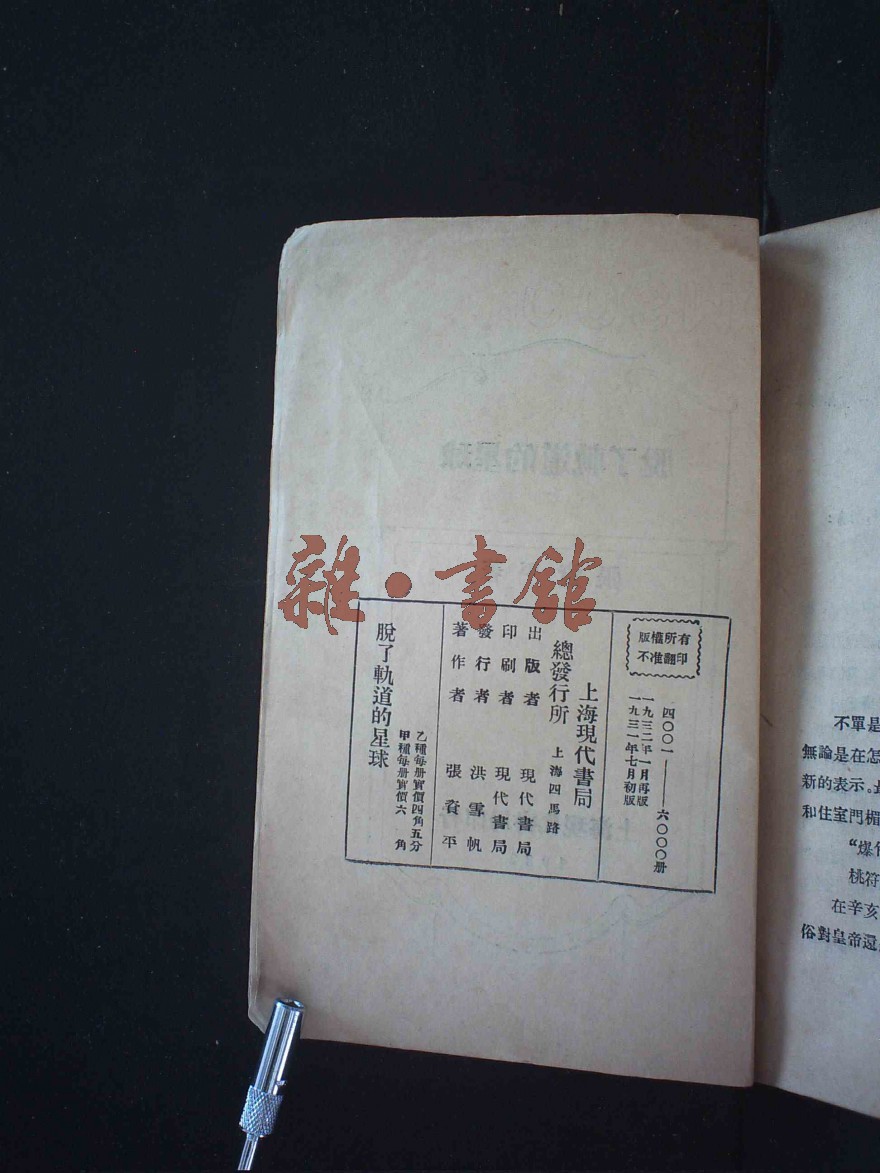 雜·書館
版權所有
不准翻印
四〇〇一——六〇〇〇册
一九三二年一月再版
一九三一年七月初版
上海現代書局
總發行所 上海四馬路
出版者 現代書局
印刷者 現代書局
發行者 洪雪帆
著作者 張資平
乙種每册實價四角五分
甲種每册實價六角
脫了軌道的星球
不單是
無論是在怎
新的表示。
和住室門楣
“爆竹
桃符
在辛亥
俗對皇帝還